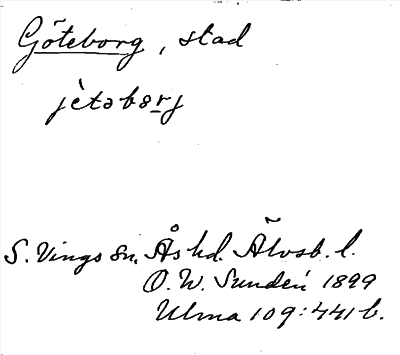 Göteborg, stad
jètəbərj
S. Vings sn. Ås hd. Älvsb. l.
O. W. Sundén 1899
Ulma 109:441 b.